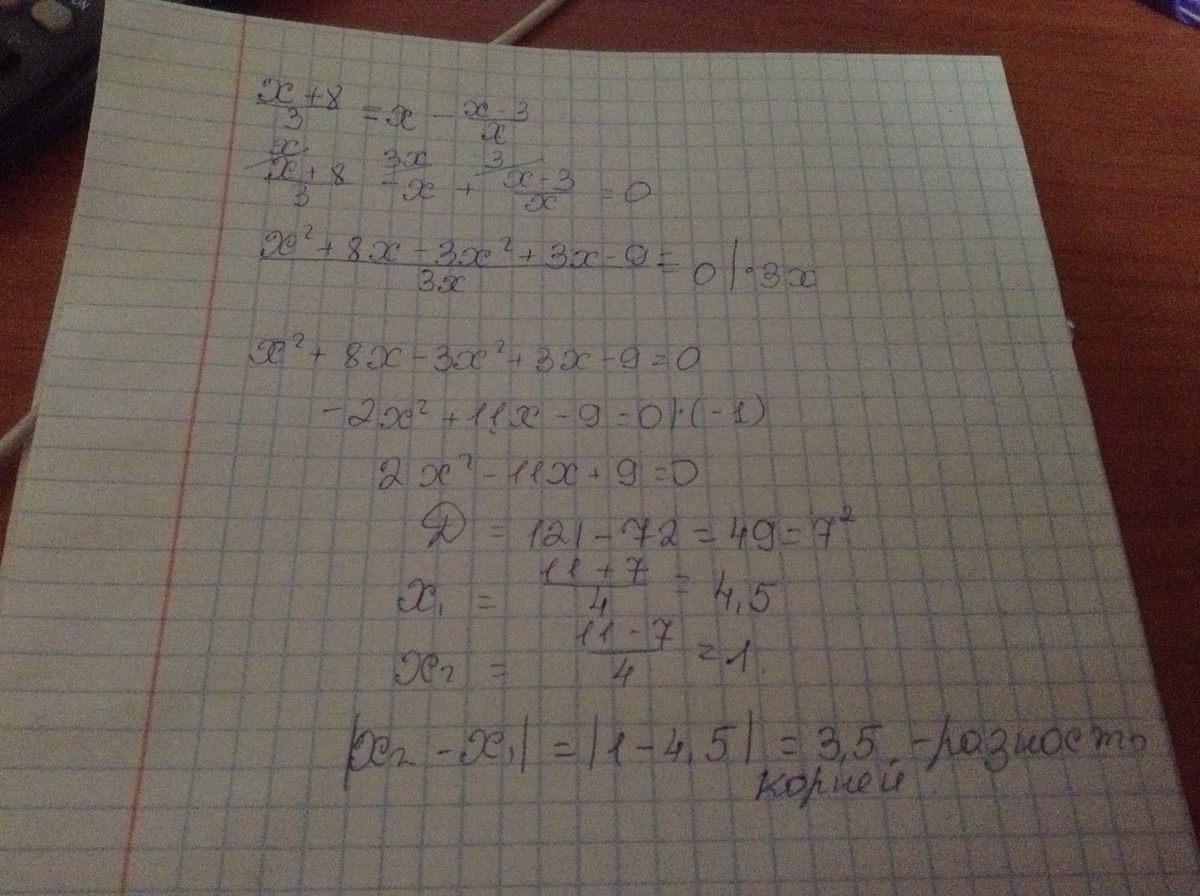 (x + 8)/3 = x - (x - 3)/x
x/ (x + 8)/3 3x/ - x + 3/ (x - 3)/x = 0
(x² + 8x - 3x² + 3x - 9)/3x = 0 | · 3x
x² + 8x - 3x² + 3x - 9 = 0
-2x² + 11x - 9 = 0 | · (-1)
2x² - 11x + 9 = 0
D = 121 - 72 = 49 = 7²
x₁ = (11 + 7)/4 = 4,5
x₂ = (11 - 7)/4 = 1.
|x₂ - x₁| = |1 - 4,5| = 3,5. - разность
корней.